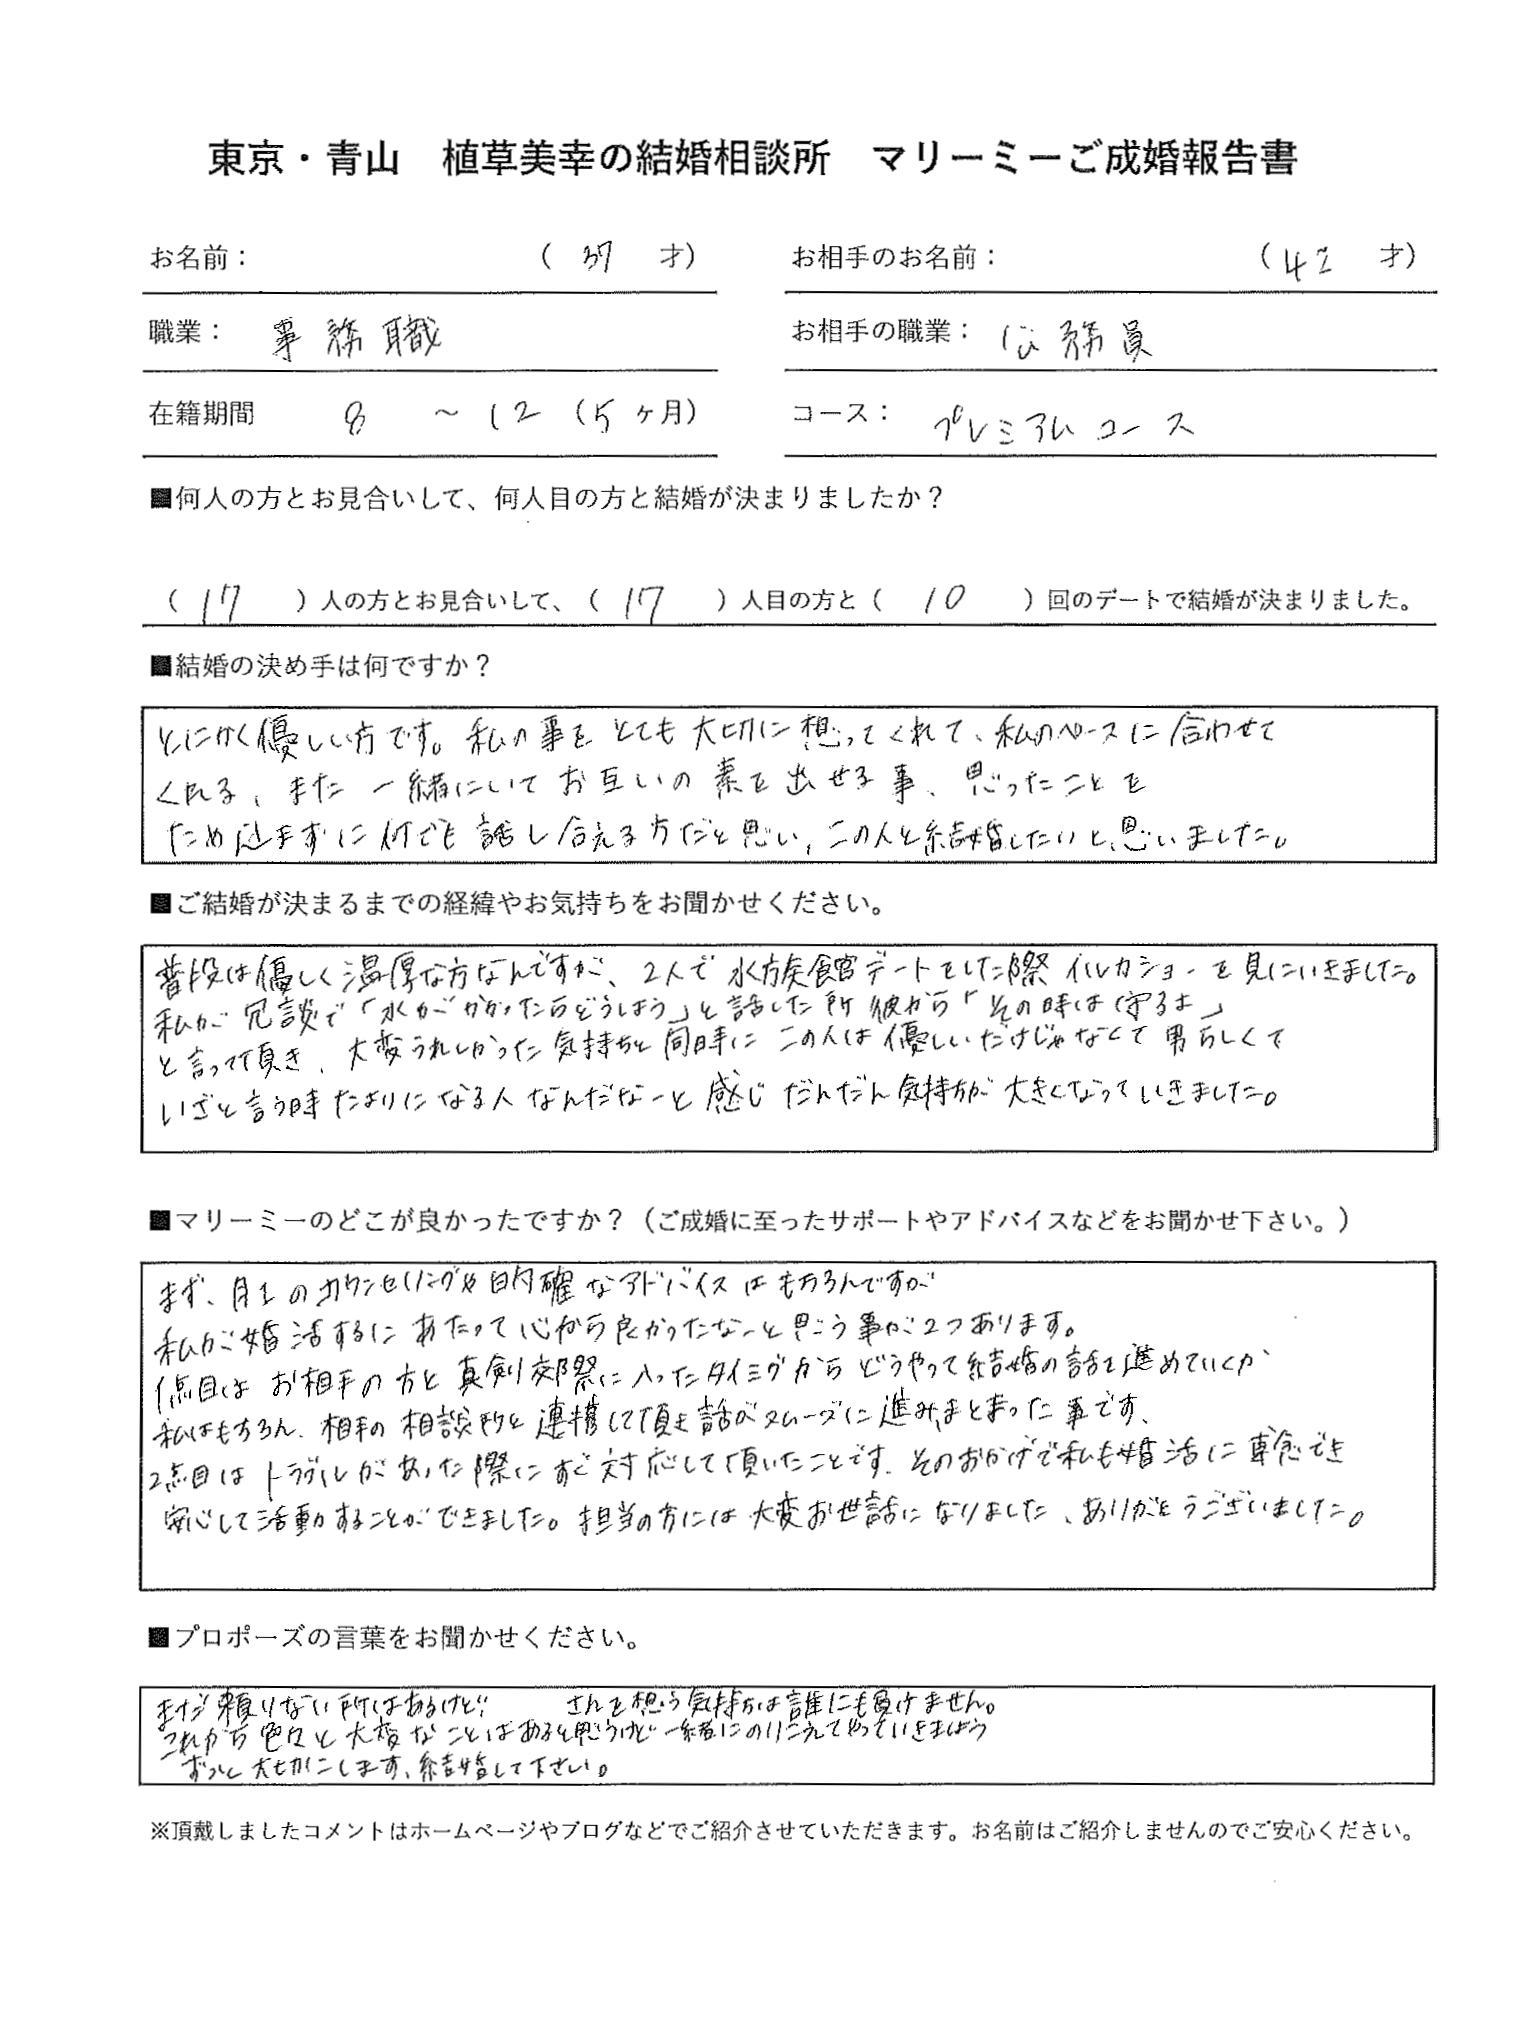 東京・青山 植草美幸の結婚相談所 マリーミーご成婚報告書
お名前： （ 37 才） お相手のお名前： （42 才）
職業： 事務職 お相手の職業： 公務員
在籍期間 8 ～ 12 （5ヶ月） コース： プレミアムコース
■何人の方とお見合いして、何人目の方と結婚が決まりましたか？
（ 17 ）人の方とお見合いして、（ 17 ）人目の方と（ 10 ）回のデートで結婚が決まりました。
■結婚の決め手は何ですか？
とにかく優しい方です。私の事をとても大切に想ってくれて、私のペースに合わせて
くれる、また一緒にいてお互いの素を出せる事、思ったことを
ため込まずに何でも話し合える方だと思い、この人と結婚したいと思いました。
■ご結婚が決まるまでの経緯やお気持ちをお聞かせください。
普段は優しく温厚な方なんですが、2人で水族館デートをした際イルカショーを見にいきました。
私が冗談で「水がかかったらどうしよう」と話した所彼から「その時は守るよ」
と言って頂き、大変うれしかった気持ちと同時にこの人は優しいだけじゃなくて男らしくて
いざと言う時たよりになる人なんだなーと感じだんだん気持ちが大きくなっていきました。
■マリーミーのどこが良かったですか？（ご成婚に至ったサポートやアドバイスなどをお聞かせ下さい。）
まず、月1のカウンセリングや的確なアドバイスはもちろんですが
私が婚活するにあたって心から良かったなーと思う事が2つあります。
1点目はお相手の方と真剣交際に入ったタイミグからどうやって結婚の話を進めていくか
私はもちろん、相手の相談所と連携して頂き話がスムーズに進みまとまった事です、
2点目はトラブルがあった際にすぐ対応して頂いたことです。そのおかげで私も婚活に専念でき
安心して活動することができました。担当の方には大変お世話になりました、ありがとうございました。
■プロポーズの言葉をお聞かせください。
まだ頼りない所はあるけど さんを想う気持ちは誰にも負けません。
これから色々と大変なことはあると思うけど一緒にのりこえてやっていきましょう
ずっと大切にします、結婚して下さい。
※頂戴しましたコメントはホームページやブログなどでご紹介させていただきます。お名前はご紹介しませんのでご安心ください。